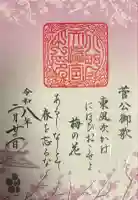 菅公御歌
東風吹かは
にほひおこせよ
梅の花
あるしなしとて
春を忘るな
令和八年
二月廿日